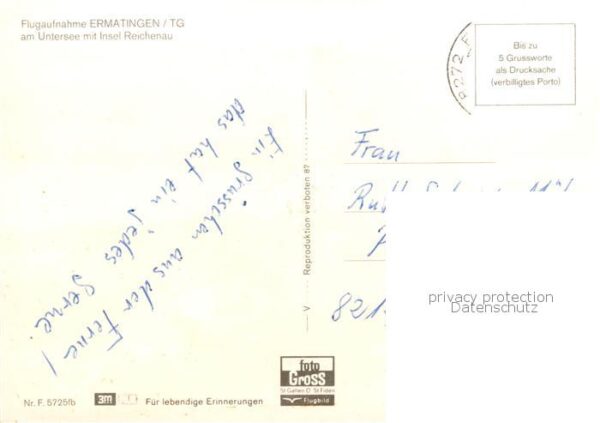 Flugaufnahme ERMATINGEN / TG
am Untersee mit Insel Reichenau
8272 E
Bis zu
5 Grussworte
als Drucksache
(verbilligtes Porto)
Ein Grüsschen aus der Ferne!
das hat ein jedes Gerne.
V
Reproduktion verboten 87
Frau
821
privacy protection
Datenschutz
foto
Gross
St.Gallen O St.Fiden
Flugbild
Nr. F. 5725fb
3m
Für lebendige Erinnerungen